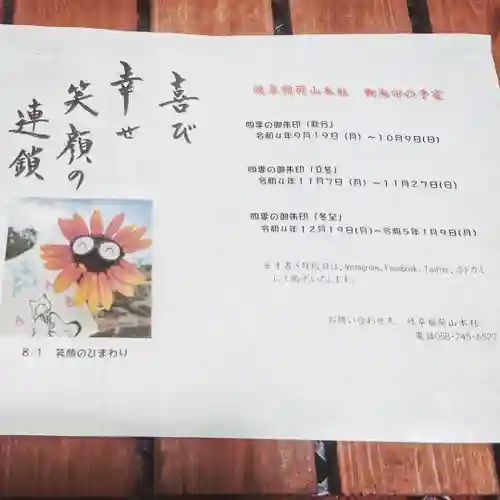 喜び
幸せ
笑顔の
連鎖
8.1 笑顔のひまわり
岐阜稲荷山本社 御朱印の予定
四季の御朱印「秋分」
令和4年9月19日(月)～10月9日(日)
四季の御朱印「立冬」
令和4年11月7日(月)～11月27日(日)
四季の御朱印「冬至」
令和4年12月19日(月)～令和5年1月9日(月)
Instagram、Facebook、Twitter、ホトカミ
にて掲示いたします。
お問い合わせ先 岐阜稲荷山本社
電話058-245-6527